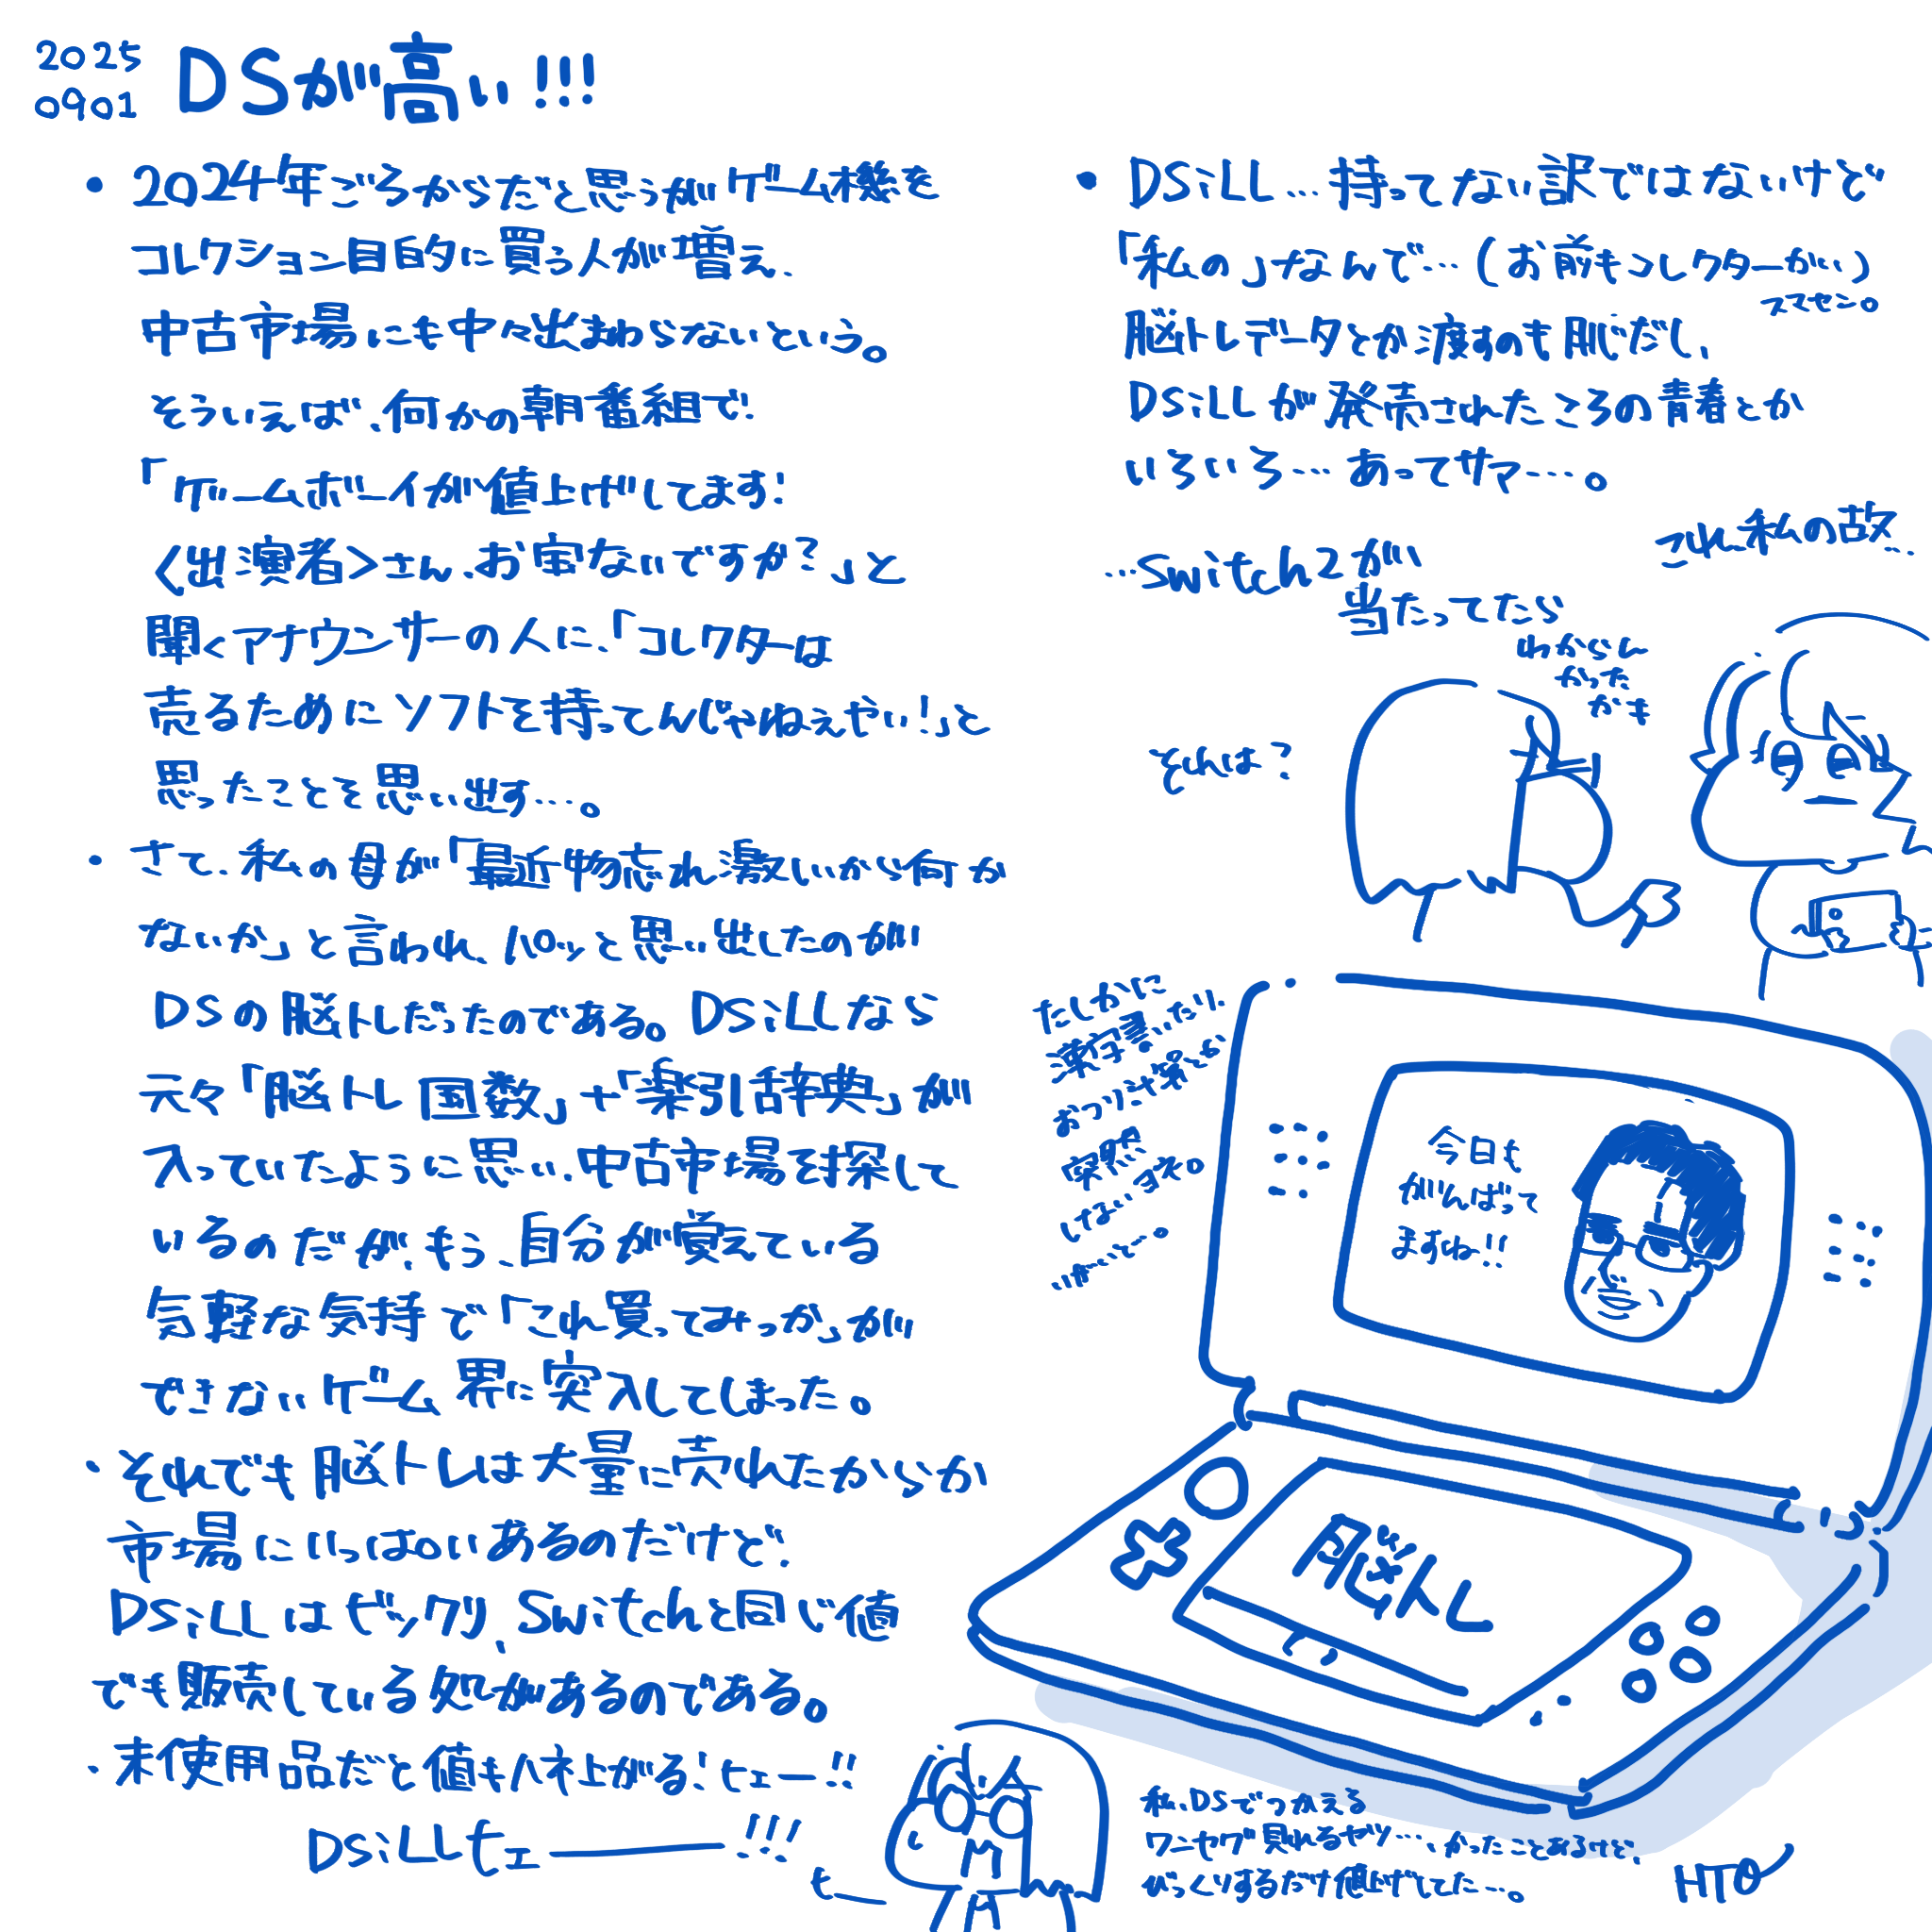 2025
0901
DSが高い!!!
・2024年ごろからだと思うがゲーム機を
コレクション目的に買う人が増え、
中古市場にも中々出まわらないという。
そういえば、何かの朝番組で
「ゲームボーイが値上げしてます!
<出演者>さん、お宝ないですか?」と
聞くアナウンサーの人に、「コレクターは
売るためにソフトを持ってんじゃねぇやい!」と
思ったことを思い出す…。
・さて、私の母が「最近物忘れ激しいから何か
ないか」と言われ、パッと思い出したのが
DSの脳トレだったのである。DSiLLなら
元々「脳トレ国数」+「楽引辞典」が
入っていたように思い、中古市場を探して
いるのだが、もう、自分が覚えている
気軽な気持で「これ買ってみっか」が
できないゲーム界に突入してしまった。
・それでも脳トレは大量に売れたからか
市場にいっぱいあるのだけど、
DSiLLはビックリ、Switchと同じ値
でも販売している処があるのである。
・未使用品だと値もハネ上がる!ヒェー!!
DSiLLヒェー!!!
ヒー
・DSiLL…持ってない訳ではないけど
「私の」なんで…(お前もコレクターかい)
スマセン。
脳トレデータとか渡すのも恥だし、
DSiLLが発売されたころの青春とか
いろいろ…あってサマ…。
…Switch2が
当たってたら
わからん
かった
かも
これ私の故…
それは?
たしかに
漢字書いたり、
おつり計算とか
突然
いがいで。
今日も
がんばって
ますね!!
脳トレ
私、DSでつかえる
ワンセグ見れるヤツ…、かったことあるけど、
びっくりするだけ値上げしてた…。
HTO